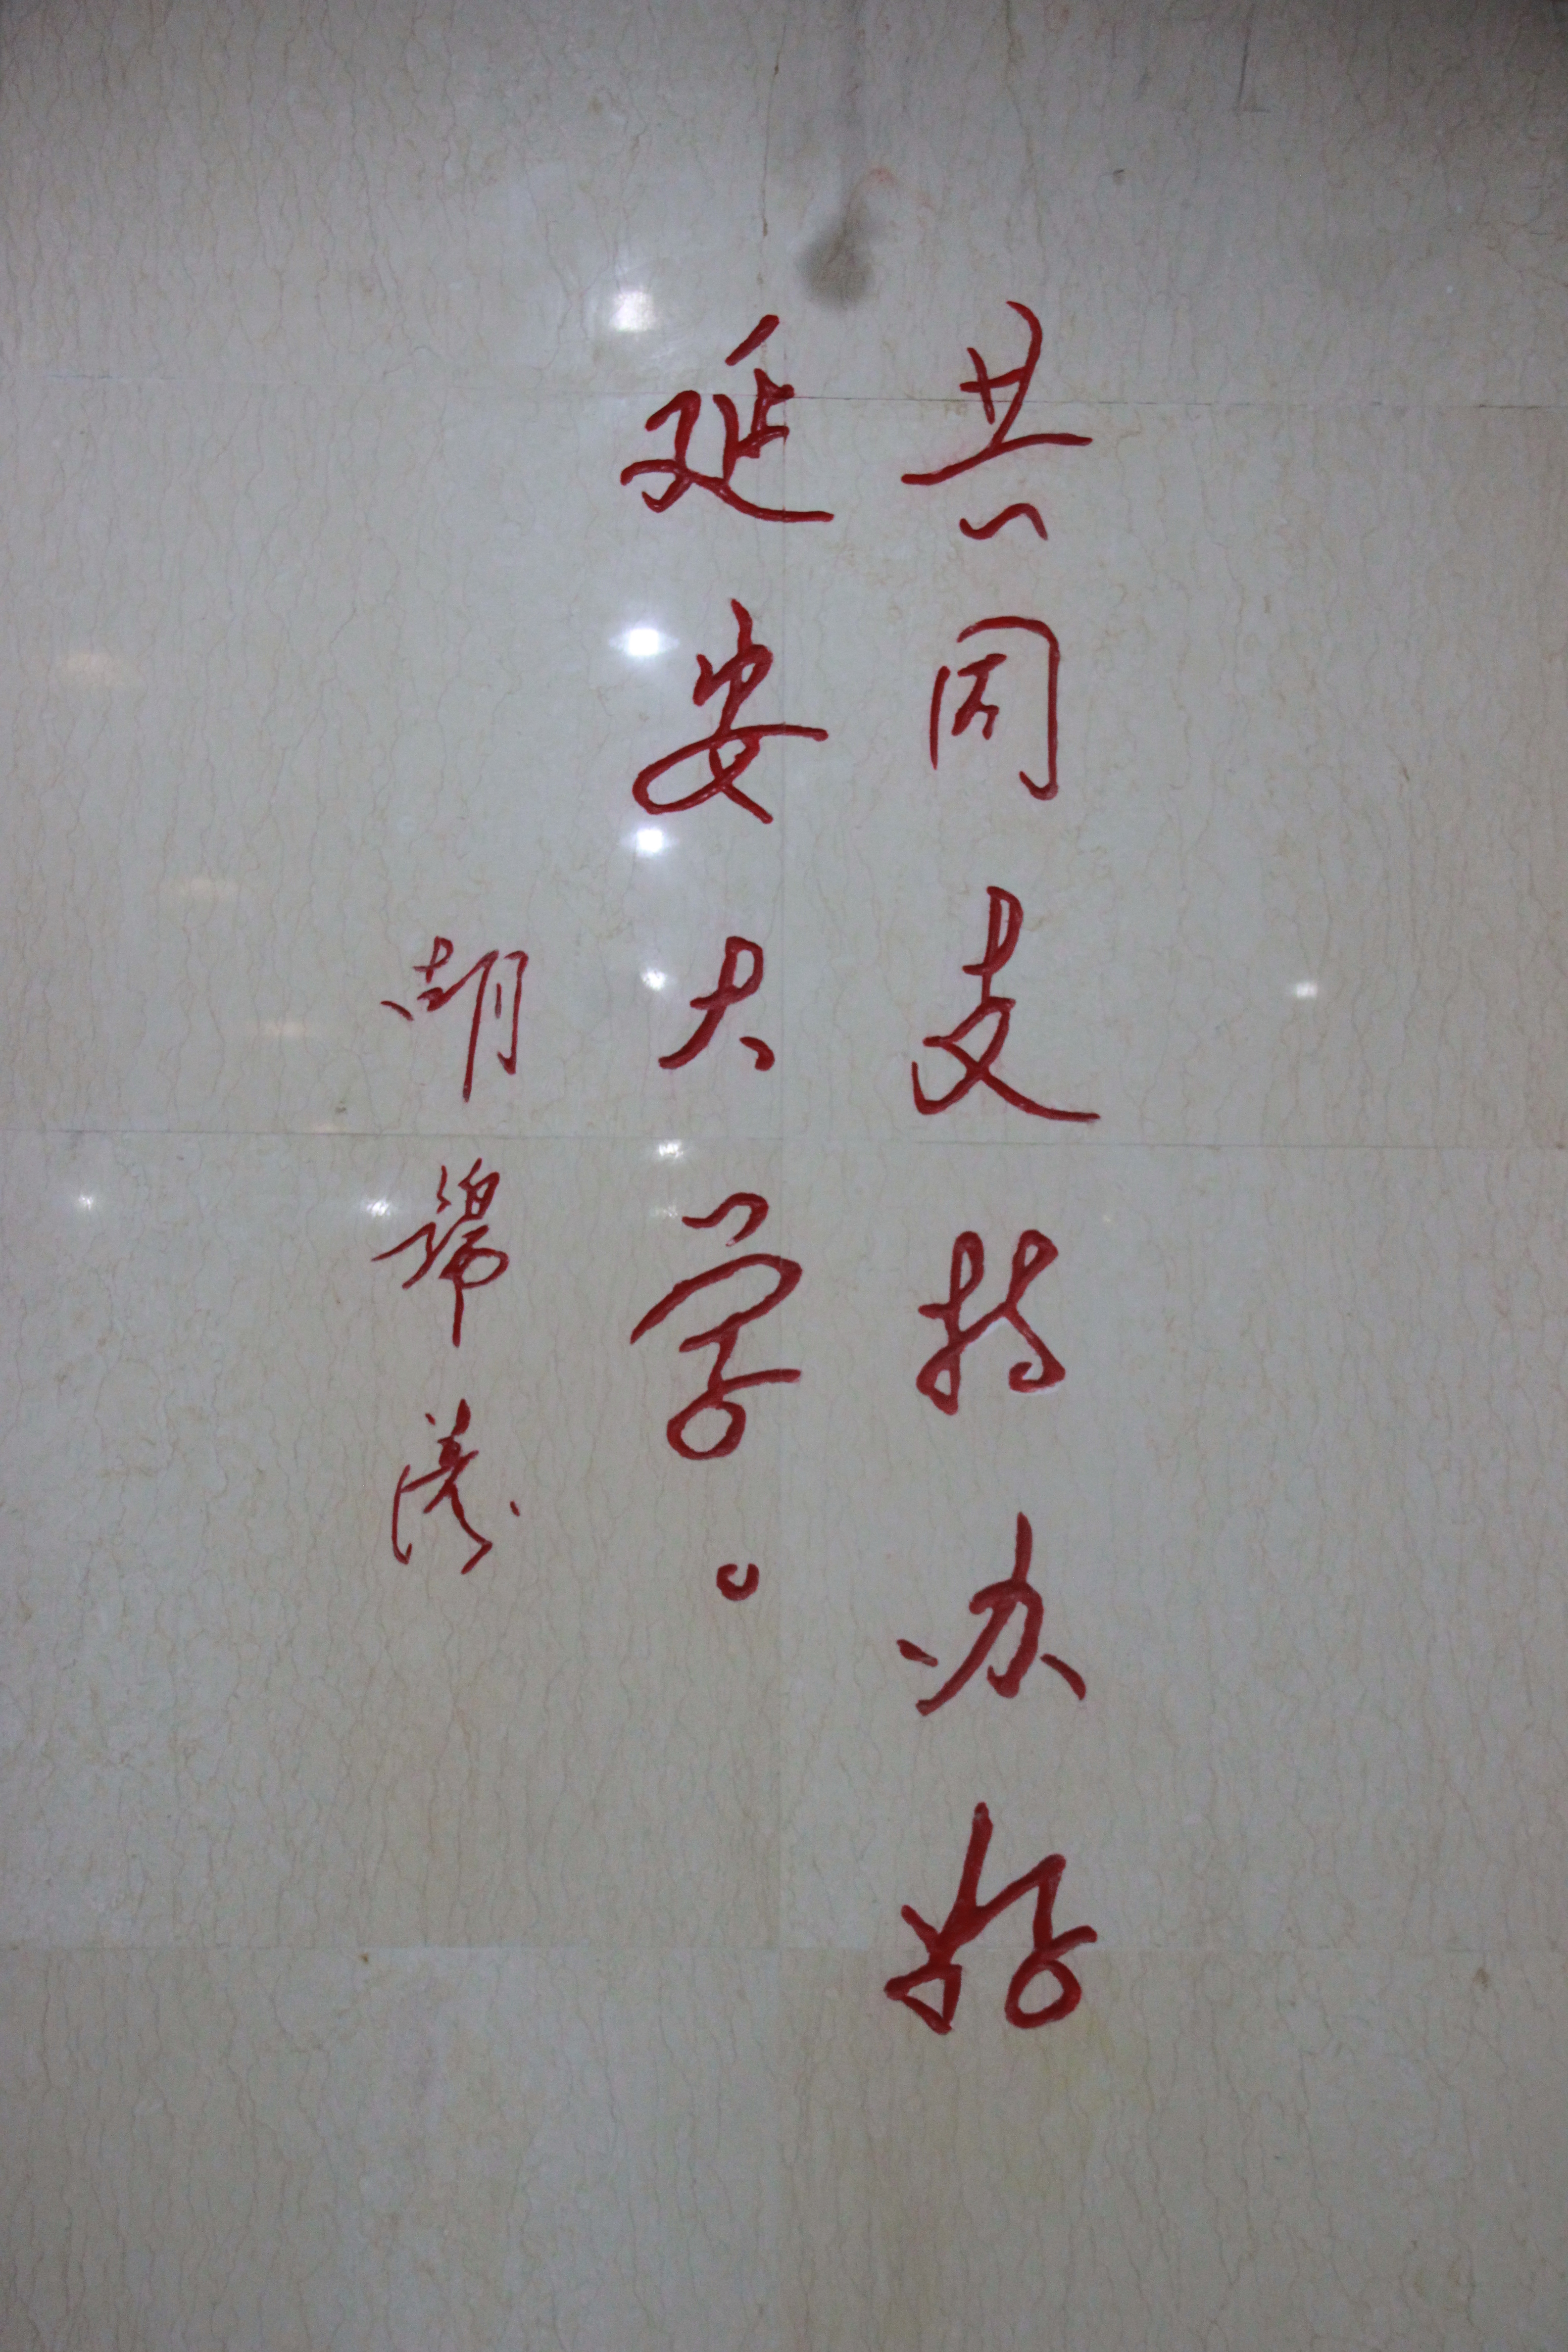 共同支持办好
延安大学。
胡锦涛